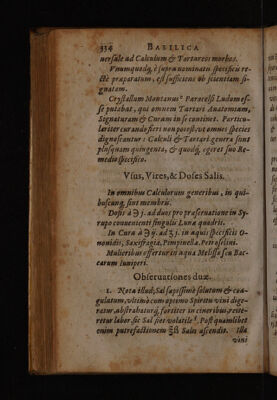 334 BASILICA
uersale ad Calculum & Tartareos morbos.
Vnumquodq, è supra nominatis specificis re-
ctè præparatum, est sufficiens ob scientiam si-
gnatam.
Crystallum Montanus Paracelsi Ludum es-
se putabat, qui omnem Tartari Anatomiam,
Signaturam & Curam in se continet. Particu-
lariter curando fieri non potest, vt omnes species
dignoscantur: Calculi & Tartari genera sunt
plusquam quingenta, & quodq, egeret suo Re-
medio specifico.
Vsus, Vires, & Doses Salis.
In omnibus Calculorum generibus, in qui-
buscunq, sint membris.
Dosis à ℈ j. ad duos pro præseruatione in Sy-
rupo conuenienti singulis Lunæ quadris.
In Cura à ℈ ij. ad ʒ j. in aquis specificis O-
nonidis, Saxifragiæ, Pimpinellæ, Petroselini.
Mulieribus offertur in aqua Melissæ seu Bac-
carum Iuniperi.
Obseruationes duæ.
1. Nota illud, Sal sæpissimè solutum & coa-
gulatum, vltimò cum optimo Spiritu vini dige-
ratur, abstrahaturq, fortiter in cineribus, reite-
retur labor, sic Sal fiet volatile. Post quamlibet
enim putrefactionem Salis ascendit. Illa
vini